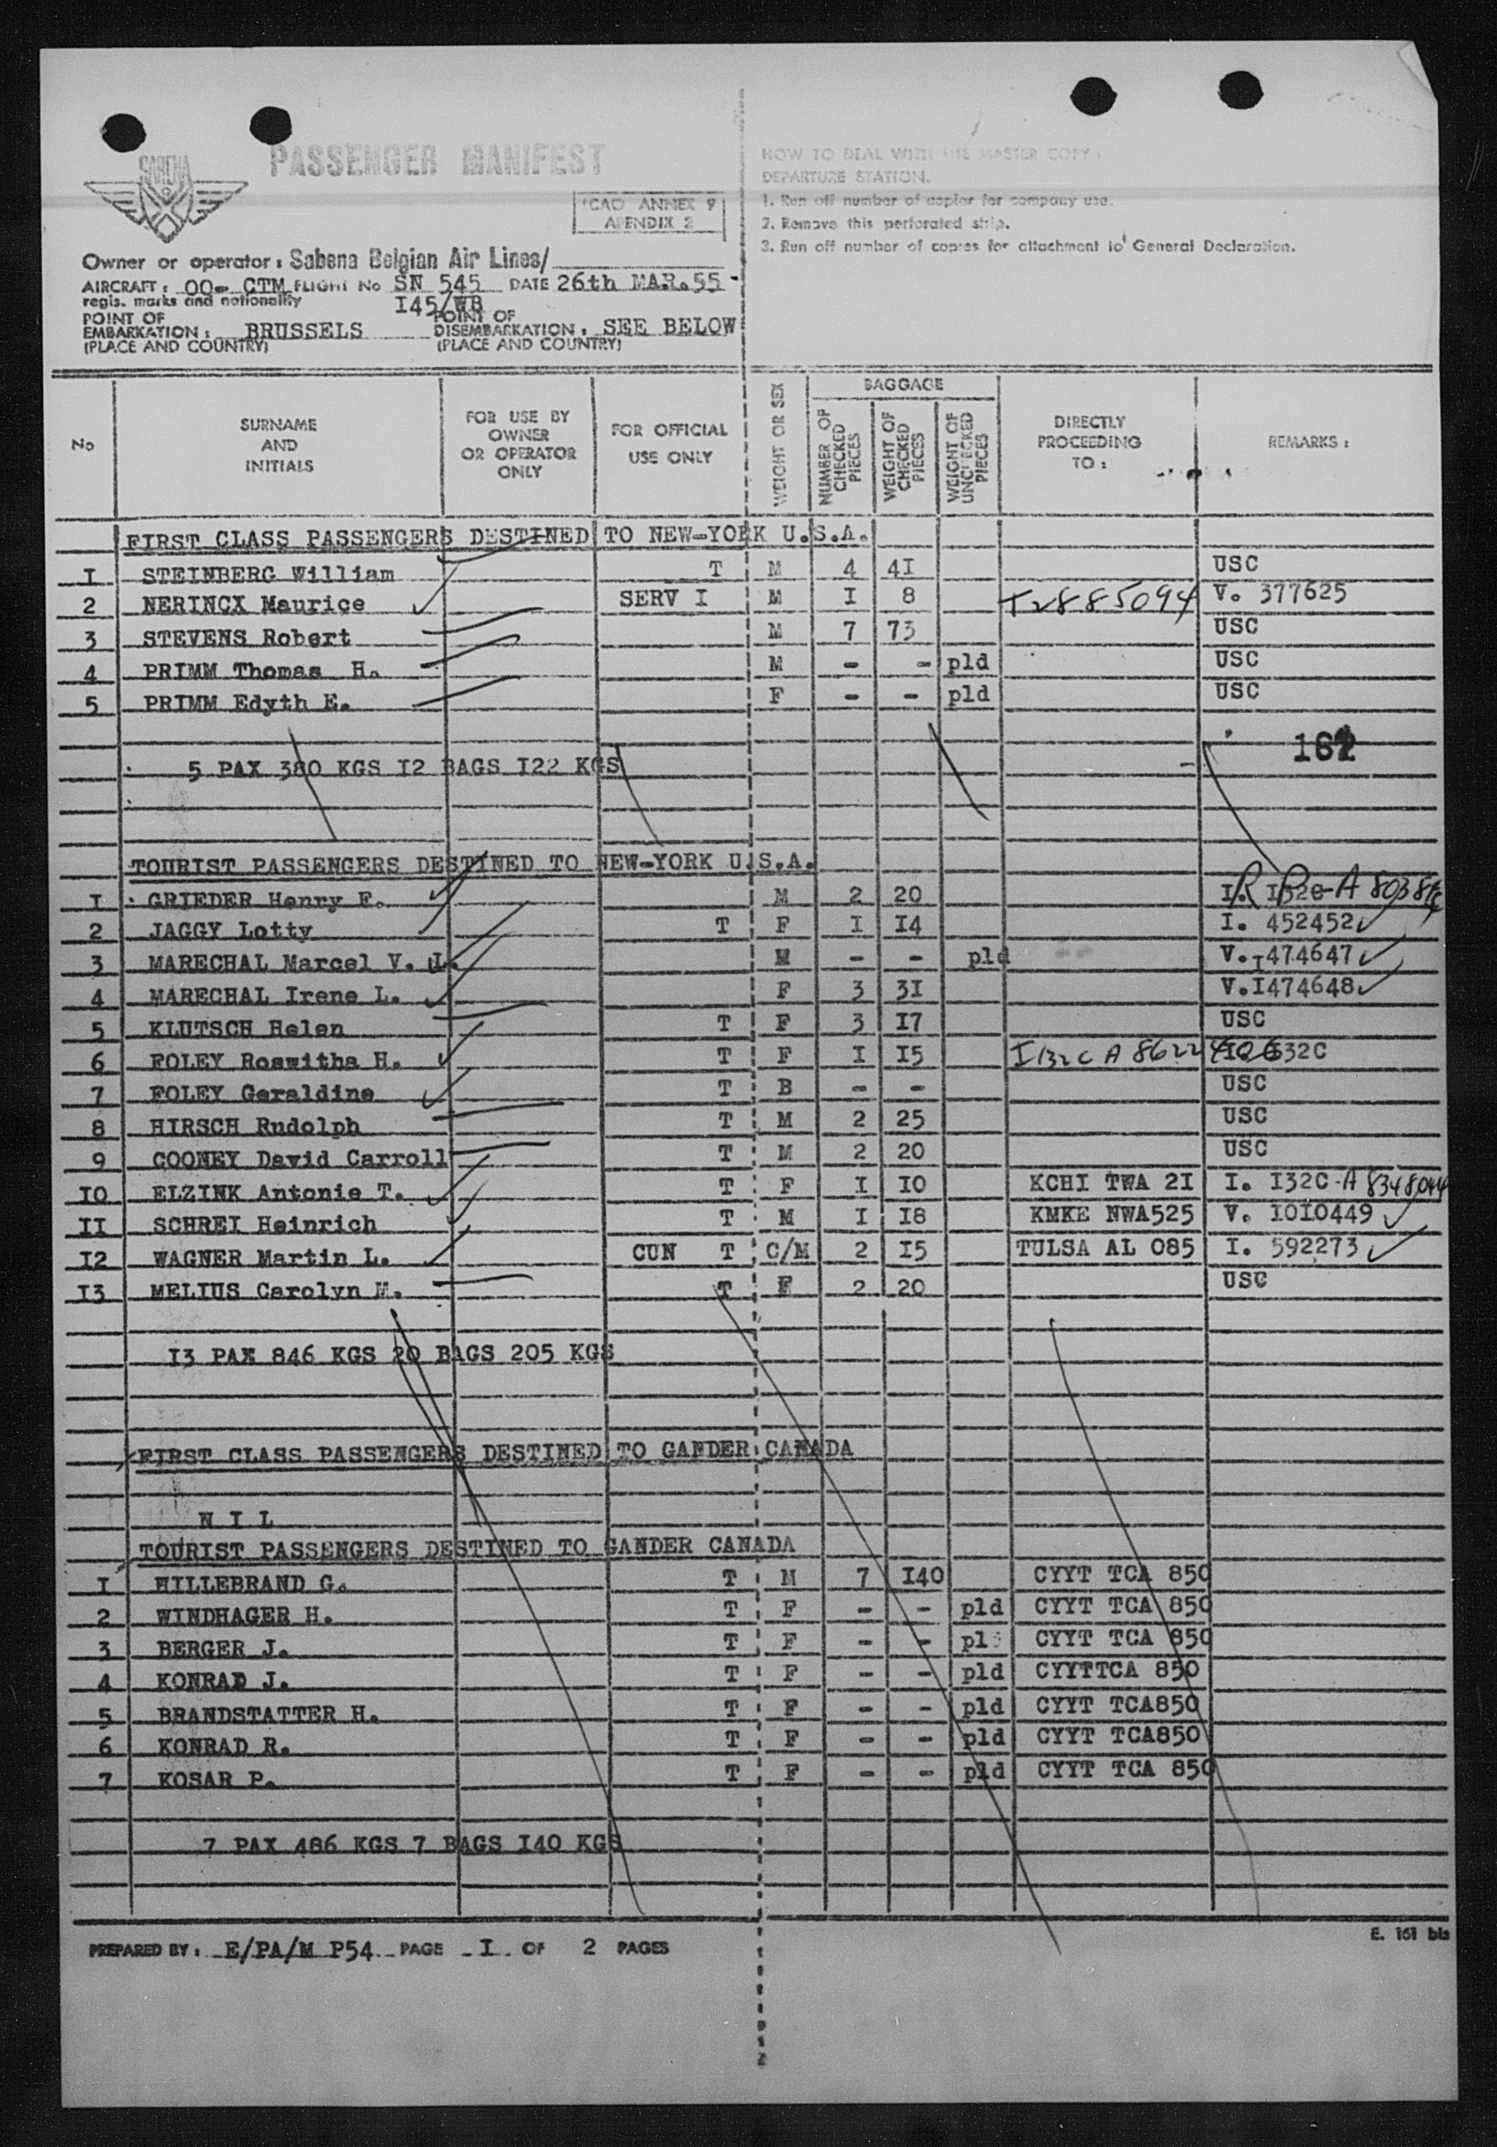 SABENA
PASSENGER MANIFEST
ICAO ANNEX 9
APENDIX 2
HOW TO DEAL WITH THE MASTER COPY :
DEPARTURE STATION.
1. Run off number of copies for company use.
2. Remove this perforated strip.
3. Run off number of copies for attachment to General Declaration.
Owner or operator : Sabena Belgian Air Lines/
AIRCRAFT : OO- CTM FLIGHT No SN 545 DATE 26th MAR.55
regis. marks and nationality I45/WB
POINT OF EMBARKATION : BRUSSELS POINT OF DISEMBARKATION : SEE BELOW
(PLACE AND COUNTRY) (PLACE AND COUNTRY)
No SURNAME AND INITIALS FOR USE BY OWNER OR OPERATOR ONLY FOR OFFICIAL USE ONLY WEIGHT OR SEX BAGGAGE NUMBER OF CHECKED PIECES WEIGHT OF CHECKED PIECES WEIGHT OF UNCHECKED PIECES DIRECTLY PROCEEDING TO : REMARKS :
FIRST CLASS PASSENGERS DESTINED TO NEW-YORK U.S.A.
I STEINBERG William T M 4 4I USC
2 NERINCX Maurice SERV I M I 8 T2885094 V. 377625
3 STEVENS Robert M 7 73 USC
4 PRIMM Thomas H. M - - pld USC
5 PRIMM Edyth E. F - - pld USC
5 PAX 380 KGS I2 BAGS I22 KGS
TOURIST PASSENGERS DESTINED TO NEW-YORK U.S.A.
I GRIEDER Henry F. M 2 20
2 JAGGY Lotty T F I I4 I. 452452
3 MARECHAL Marcel V. L. M - - pld V.I474647
4 MARECHAL Irene L. F 3 3I V.I474648
5 KLUTSCH Helen T F 3 I7 USC
6 FOLEY Roswitha H. T F I I5 I132C A 8622
7 FOLEY Geraldine T B - - USC
8 HIRSCH Rudolph T M 2 25 USC
9 COONEY David Carroll T M 2 20 USC
IO ELZINK Antonie T. T F I IO KCHI TWA 2I I. I32C-A 8348044
II SCHREI Heinrich T M I I8 KMKE NWA525 V. IOIO449
I2 WAGNER Martin L. CUN T C/M 2 I5 TULSA AL O85 I. 592273
I3 MELIUS Carolyn M. T F 2 20 USC
I3 PAX 846 KGS 20 BAGS 205 KGS
FIRST CLASS PASSENGERS DESTINED TO GANDER CANADA
N I L
TOURIST PASSENGERS DESTINED TO GANDER CANADA
I HILLEBRAND G. T M 7 I40 CYYT TCA 850
2 WINDHAGER H. T F - - pld CYYT TCA 850
3 BERGER J. T F - - pld CYYT TCA 850
4 KONRAD J. T F - - pld CYYTTCA 850
5 BRANDSTATTER H. T F - - pld CYYT TCA850
6 KONRAD R. T F - - pld CYYT TCA850
7 KOSAR P. T F - - pld CYYT TCA 850
7 PAX 486 KGS 7 BAGS I40 KGS
PREPARED BY : E/PA/M P54 PAGE I OF 2 PAGES
E. 161 bis